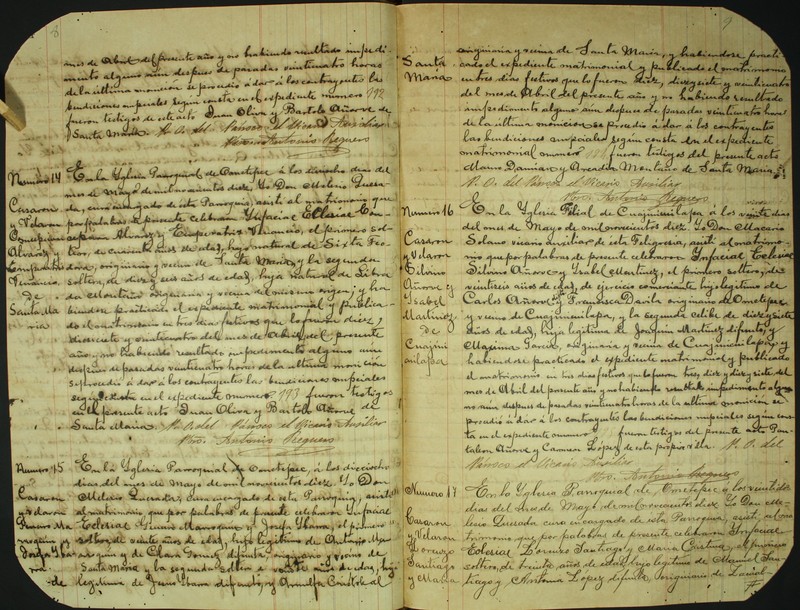 8
mes de Abril del presente año y no habiendo resultado impedi-
mento alguno aún despues de pasadas veinticuatro horas
de la última monición se procedió á dar á los contrayentes las
bendiciones nupciales según consta en el expediente numero 192
fueron testigos de este acto Juan Oliva y Bartolo Añorve de
Santa María. P. O. del Párroco el Vicario Auxiliar
Pbro. Antonio Reguero
Numero 14
Casaron
y Velaron
Concepcion
Alvarez y
Emperatriz
Venancio,
de
Santa Ma
ria
En la Yglesia Parroquial de Ometepec á los dieciocho dias del
mes de Mayo de mil novecientos diez, Yo Don Melesio Quesa-
da, cura encargado de esta Parroquia, asistí al matrimonio que
por palabras de presente celebraron Ynfaciae Eclesiae Con-
cepcion Alvarez y Emperatriz Venancio, el primero sol-
tero, de cuarenta años de edad, hijo natural de Sixta Teo-
dora, originario y vecino de Santa Maria y la segunda
soltera, de diez y seis años de edad, hija natural de Libra-
da Montaño originaria y vecina del mismo origen; y ha-
biendose practicado el expediente matrimonial y publica-
do el matrimonio en tres dias festivos que lo fueron diez,
diesisiete y veinticuatro del mes de Abril del presente
año y no habiendo resultado impedimento alguno aún
despues de pasadas veinticuatro horas de la ultima monición
se procedió á dar á los contrayentes las bendiciones nupciales
según consta en el expediente numero 193 fueron testigos
en el presente acto Juan Oliva y Bartolo Añorve de
Santa María P. O. del Párroco el Vicario Auxiliar
Pbro. Antonio Reguero
Numero 15
Casaron
y velaron
En la Yglesia Parroquial de Ometepec, á los dieciocho
dias del mes de Mayo de mil novecientos diez. Yo Don
Melesio Quesada, cura encargado de esta Parroquia, asistí
al matrimonio que por palabras de presente celebraron Ynfaciae
Eclesiae Marroquin y Josefa Ybarra, el primero
soltero de veinte años de edad, hijo legitimo de Antonio Marr
oquin y de Clara Gomez difunta, originario y vecino de
Santa María y la segunda soltera de veinte años de edad, hija
legitima de Ybarra difunto, y
9
Santa
María
originaria y vecina de Santa María, y habiendose practi-
cado el expediente matrimonial y publicado el matrimonio
en tres dias festivos que lo fueron diez, diesisiete y veinticuatro
del mes de Abril del presente año y no habiendo resultado
impedimento alguno aún despues de pasadas veinticuatro horas
de la última monición se procedió á dar á los contrayentes
las bendiciones nupciales según consta en el expediente
matrimonial numero fueron testigos del presente acto
Mauro Damian y Arcadio Montaño de Santa María
P. O. del Párroco el Vicario Auxiliar
Pbro. Antonio Reguero
Numero 16
Casaron
y Velaron
Silvino
Añorve y
Ysabel
Martinez
de
Cuajini
cuilapa
En la Yglesia Filial de Cuajinicuilapa á los veinte dias
del mes de Mayo de mil novecientos diez. Yo Don Macario
Solano vicario auxiliar de esta Feligresia, asistí al matrimo-
nio que por palabras de presente celebraron Ynfaciae Eclesiae
Silvino Añorve y Ysabel Martinez, el primero soltero, de
veintiseis años de edad, de ejercicio comerciante hijo legitimo de
Carlos Añorve y Francisca Davila originario de Ometepec
y vecino de Cuajinicuilapa, y la segunda celibe de diez y siete
años de edad, hija legitima de Joaquin Martinez difunto y
Maxima Garcia, originaria y vecina de Cuajinicuilapa; y
habiendose practicado el expediente matrimonial y publicado
el matrimonio en tres dias festivos que fueron tres, diez y diez y siete del mes
de Abril del presente año y no habiendo resultado impedimento algu-
no aún despues de pasadas veinticuatro horas de la última monición se
procedió á dar á los contrayentes las bendiciones nupciales según cons-
ta en el expediente numero fueron testigos del presente acto Pan-
taleon Añorve y Carmen López de esta propia villa P. O. del
Párroco el Vicario Auxiliar
Pbro. Antonio Reguero
Numero 17
Casaron
y Velaron
Lorenzo
Santiago
y Maria
En la Yglesia Parroquial de Ometepec á los veintidos
dias del mes de Mayo de mil novecientos diez Yo Don Me-
lesio Quesada cura encargado de esta Parroquia, asistí al ma-
trimonio que por palabras de presente celebraron Ynfaciae
Eclesiae Lorenzo Santiago y Maria Cristina, el primero
soltero, de treinta años de edad hijo legitimo de Manuel San-
tiago y Antonia Lopez difunta originario de